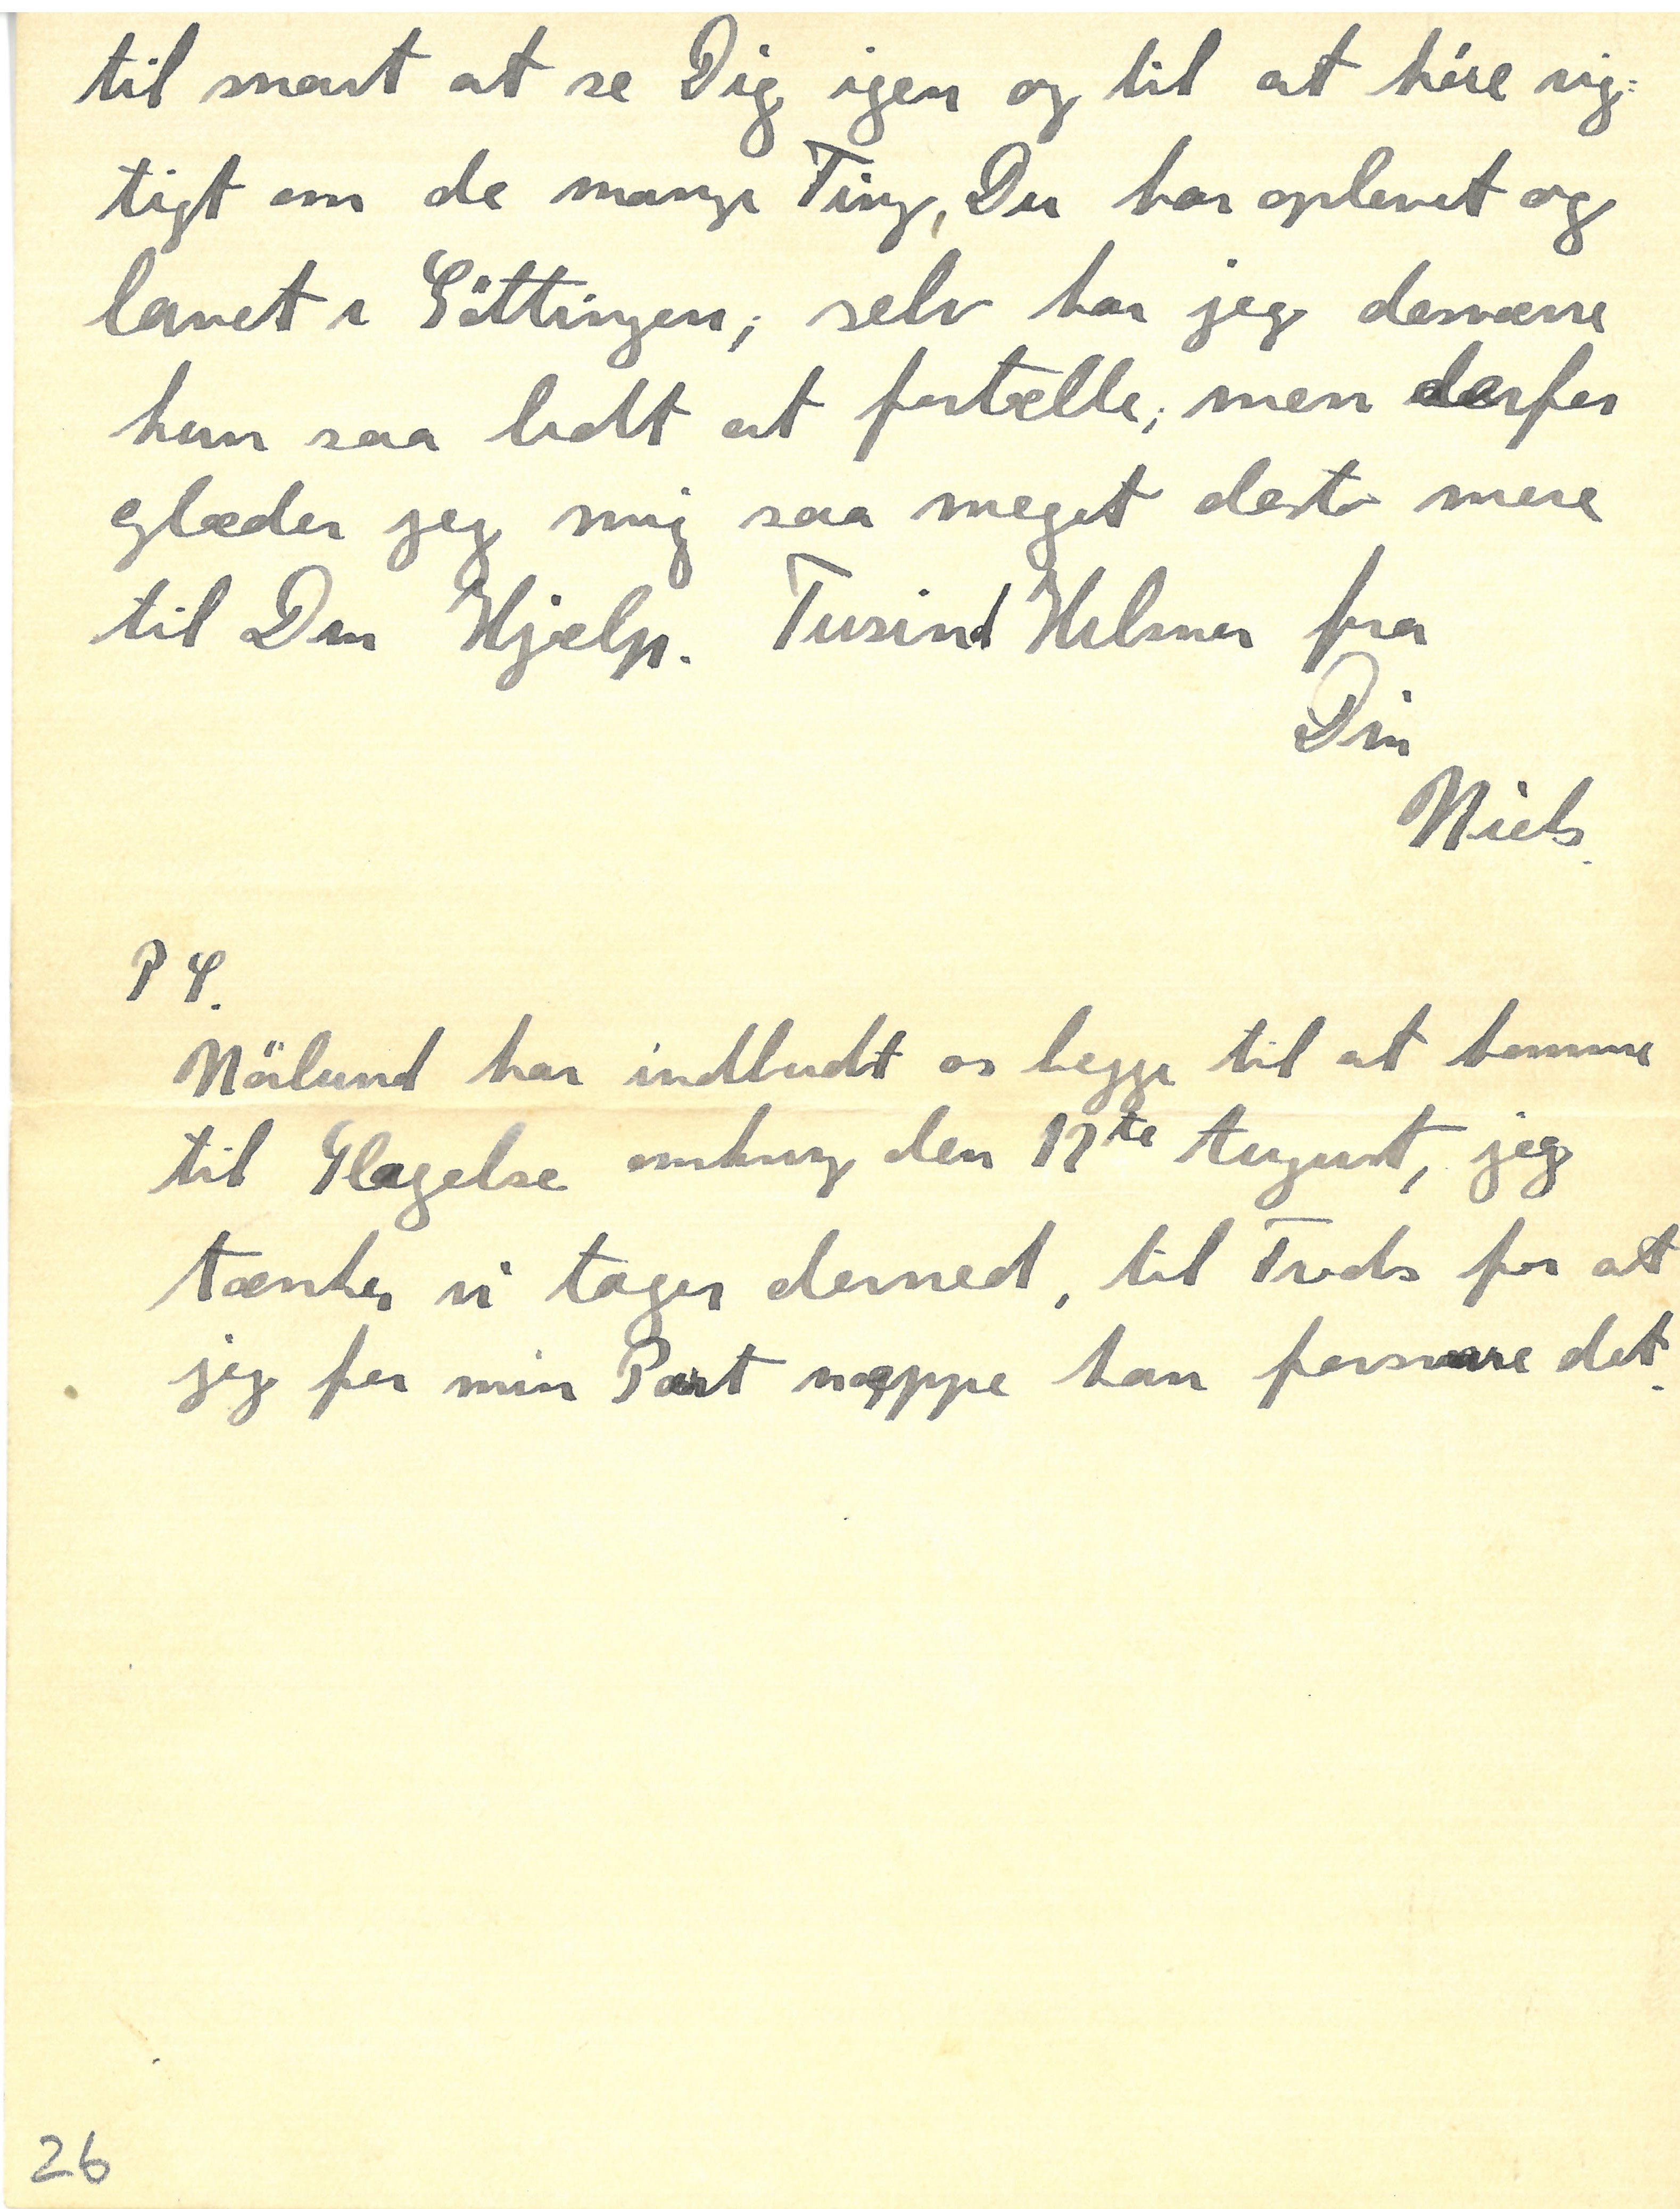 til snart at se Dig igen og til at höre rig=
tigt om de mange Ting, Du har oplevet og
lavet i Göttingen; selv har jeg desværre
kun saa lidt at fortælle; men derfor
glæder jeg mig saa meget desto mere
til Din Hjælp. Tusind Hilsner fra
Din
Niels.
P S.
Nörlund har indbudt os begge til at komme
til Slagelse omkring den 17te August, jeg
tænker vi tager derned, til Trods for at
jeg for min Part næppe kan forsvare det.
26